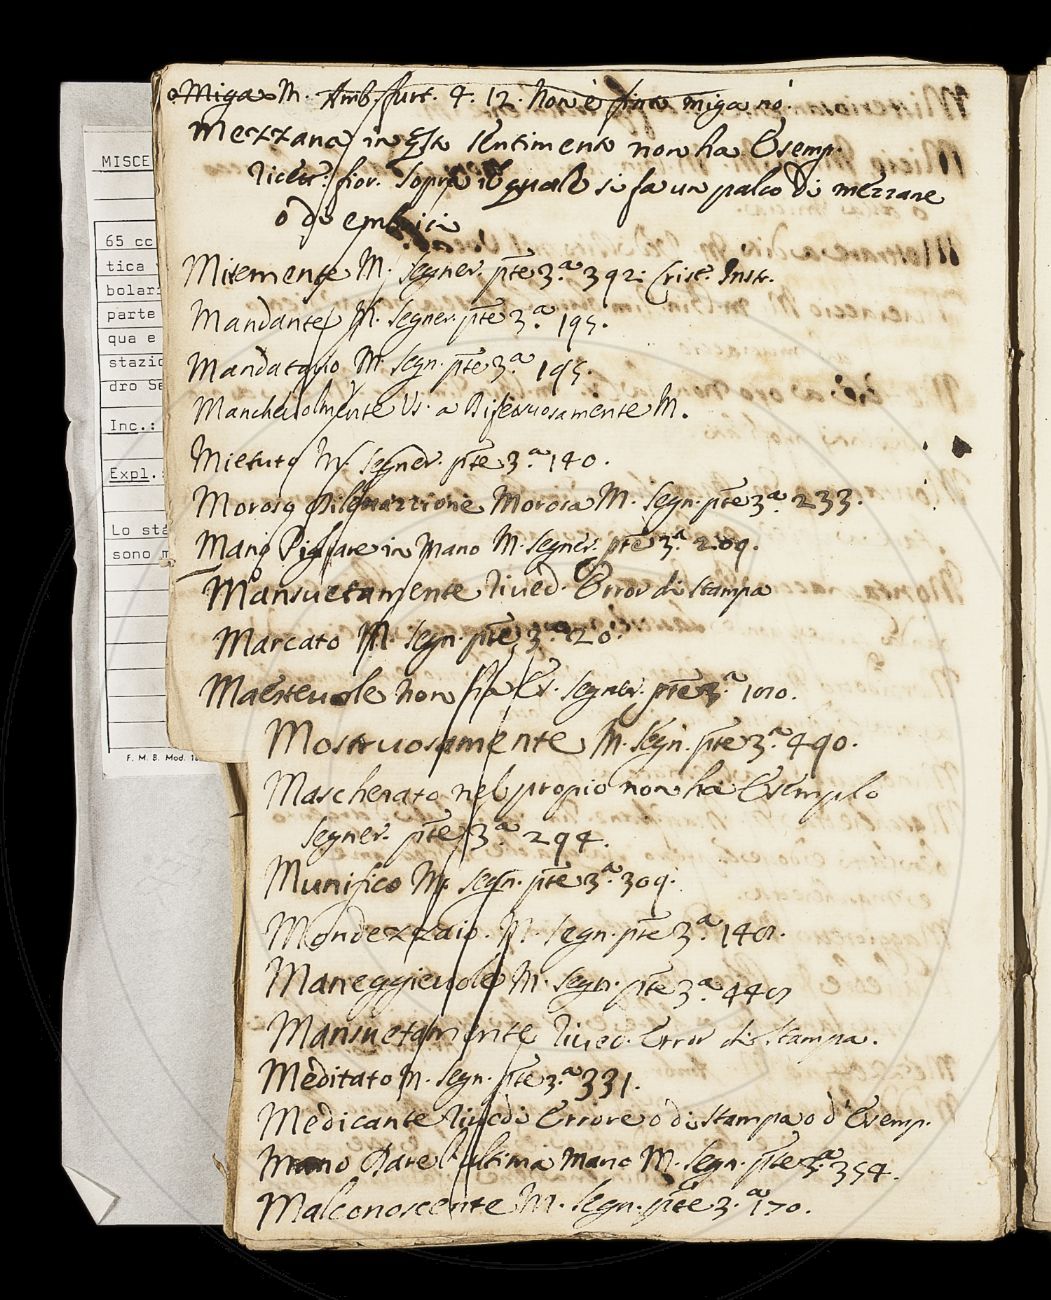 Miga M. Amb. furt. 4. 12. Non è fina miga nò.
Mezzana in qsto sentimento non ha Esemp.
Ricett. fior. sopra il quale si fa un palco di mezzane
ò di embrici
Mitemente M. Segner. pte 3.a 392. Crist. Instr.
Mandante M. Segner. pte 3.a 195.
Mandatario M. Segn. pte 3.a 195.
Manchevolmente Vs. a Difettuosamente M.
Mietuto M. Segner. pte 3.a 140.
Moroso Dilettazzione Morosa M. Segn. pte 3.a 233.
Mano Pigliare in Mano M. Segner. pte 3.a 209.
Mansuetamente Rived. Error di stampa
Marcato M. Segn. pte 3.a 20.
Maestevole non ha Es. Segner. pte 3.a
Mostruosamente M. Segn. pte 3.a 490.
Mascherato nel propio non ha Esemplo
Segner. pte 3.a 294.
Munifico M. Segn. pte 3.a 309.
Mondezzaio. M. Segn. pte 3.a
Maneggievole M. Segn. pte 3.a
Mansuetamente Rived. Error di stampa.
Meditato M. Segn. pte 3.a 331.
Medicante Rivedi Errore ò di stampa o d'Esemp.
Mano Dare l'ultima Mano M. Segn. pte 3.a 354.
Malconoscente M. Segn. pte 3.a 170.
MISCE
65 cc
tica
bolari
parte
qua e
stazio
dro Se
Inc.:
Expl.:
Lo sta
sono m
F. M. B. Mod.